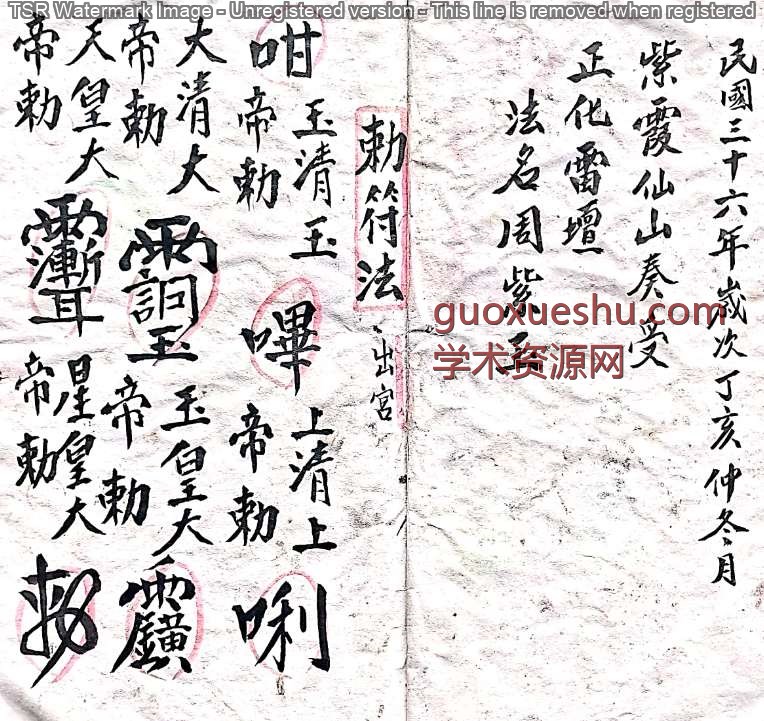 TSR Watermark Image - Unregistered version - This line is removed when registered
民國三十六年歲次丁亥仲冬月
紫霞仙山奏受
正化雷壇
法名周紫
勅符法
出宮
咁
玉清玉
帝勅
嗶
上清上
帝勅
唎
大清大
帝勅
玉皇大
帝勅
天皇大
帝勅
星皇大
帝勅
guoxueshu.com
学术资源网